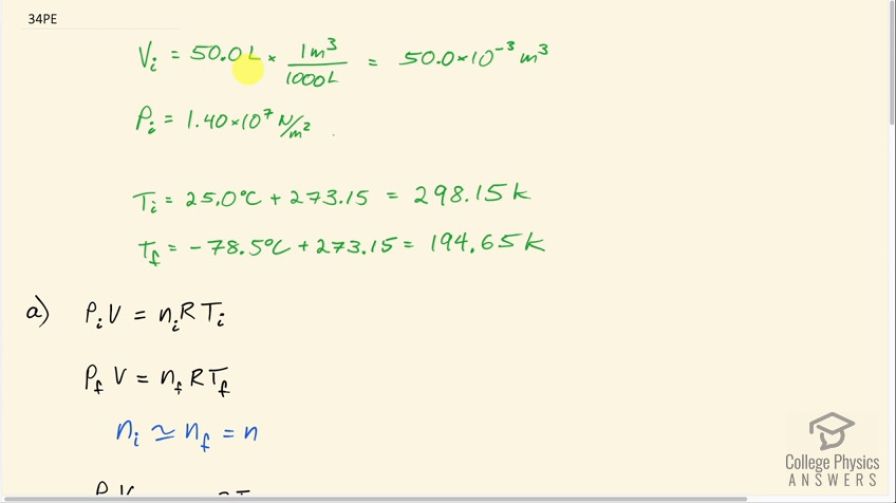 34PE
Vᵢ = 50.0L × 1m³/1000L = 50.0×10⁻³ m³
Pᵢ = 1.40×10⁷ N/m²
Tᵢ = 25.0°C + 273.15 = 298.15 k
T_f = -78.5°C + 273.15 = 194.65 k
a) PᵢV = nᵢRTᵢ
P_f V = n_f R T_f
nᵢ ≃ n_f = n
College Physics
ANSWERS